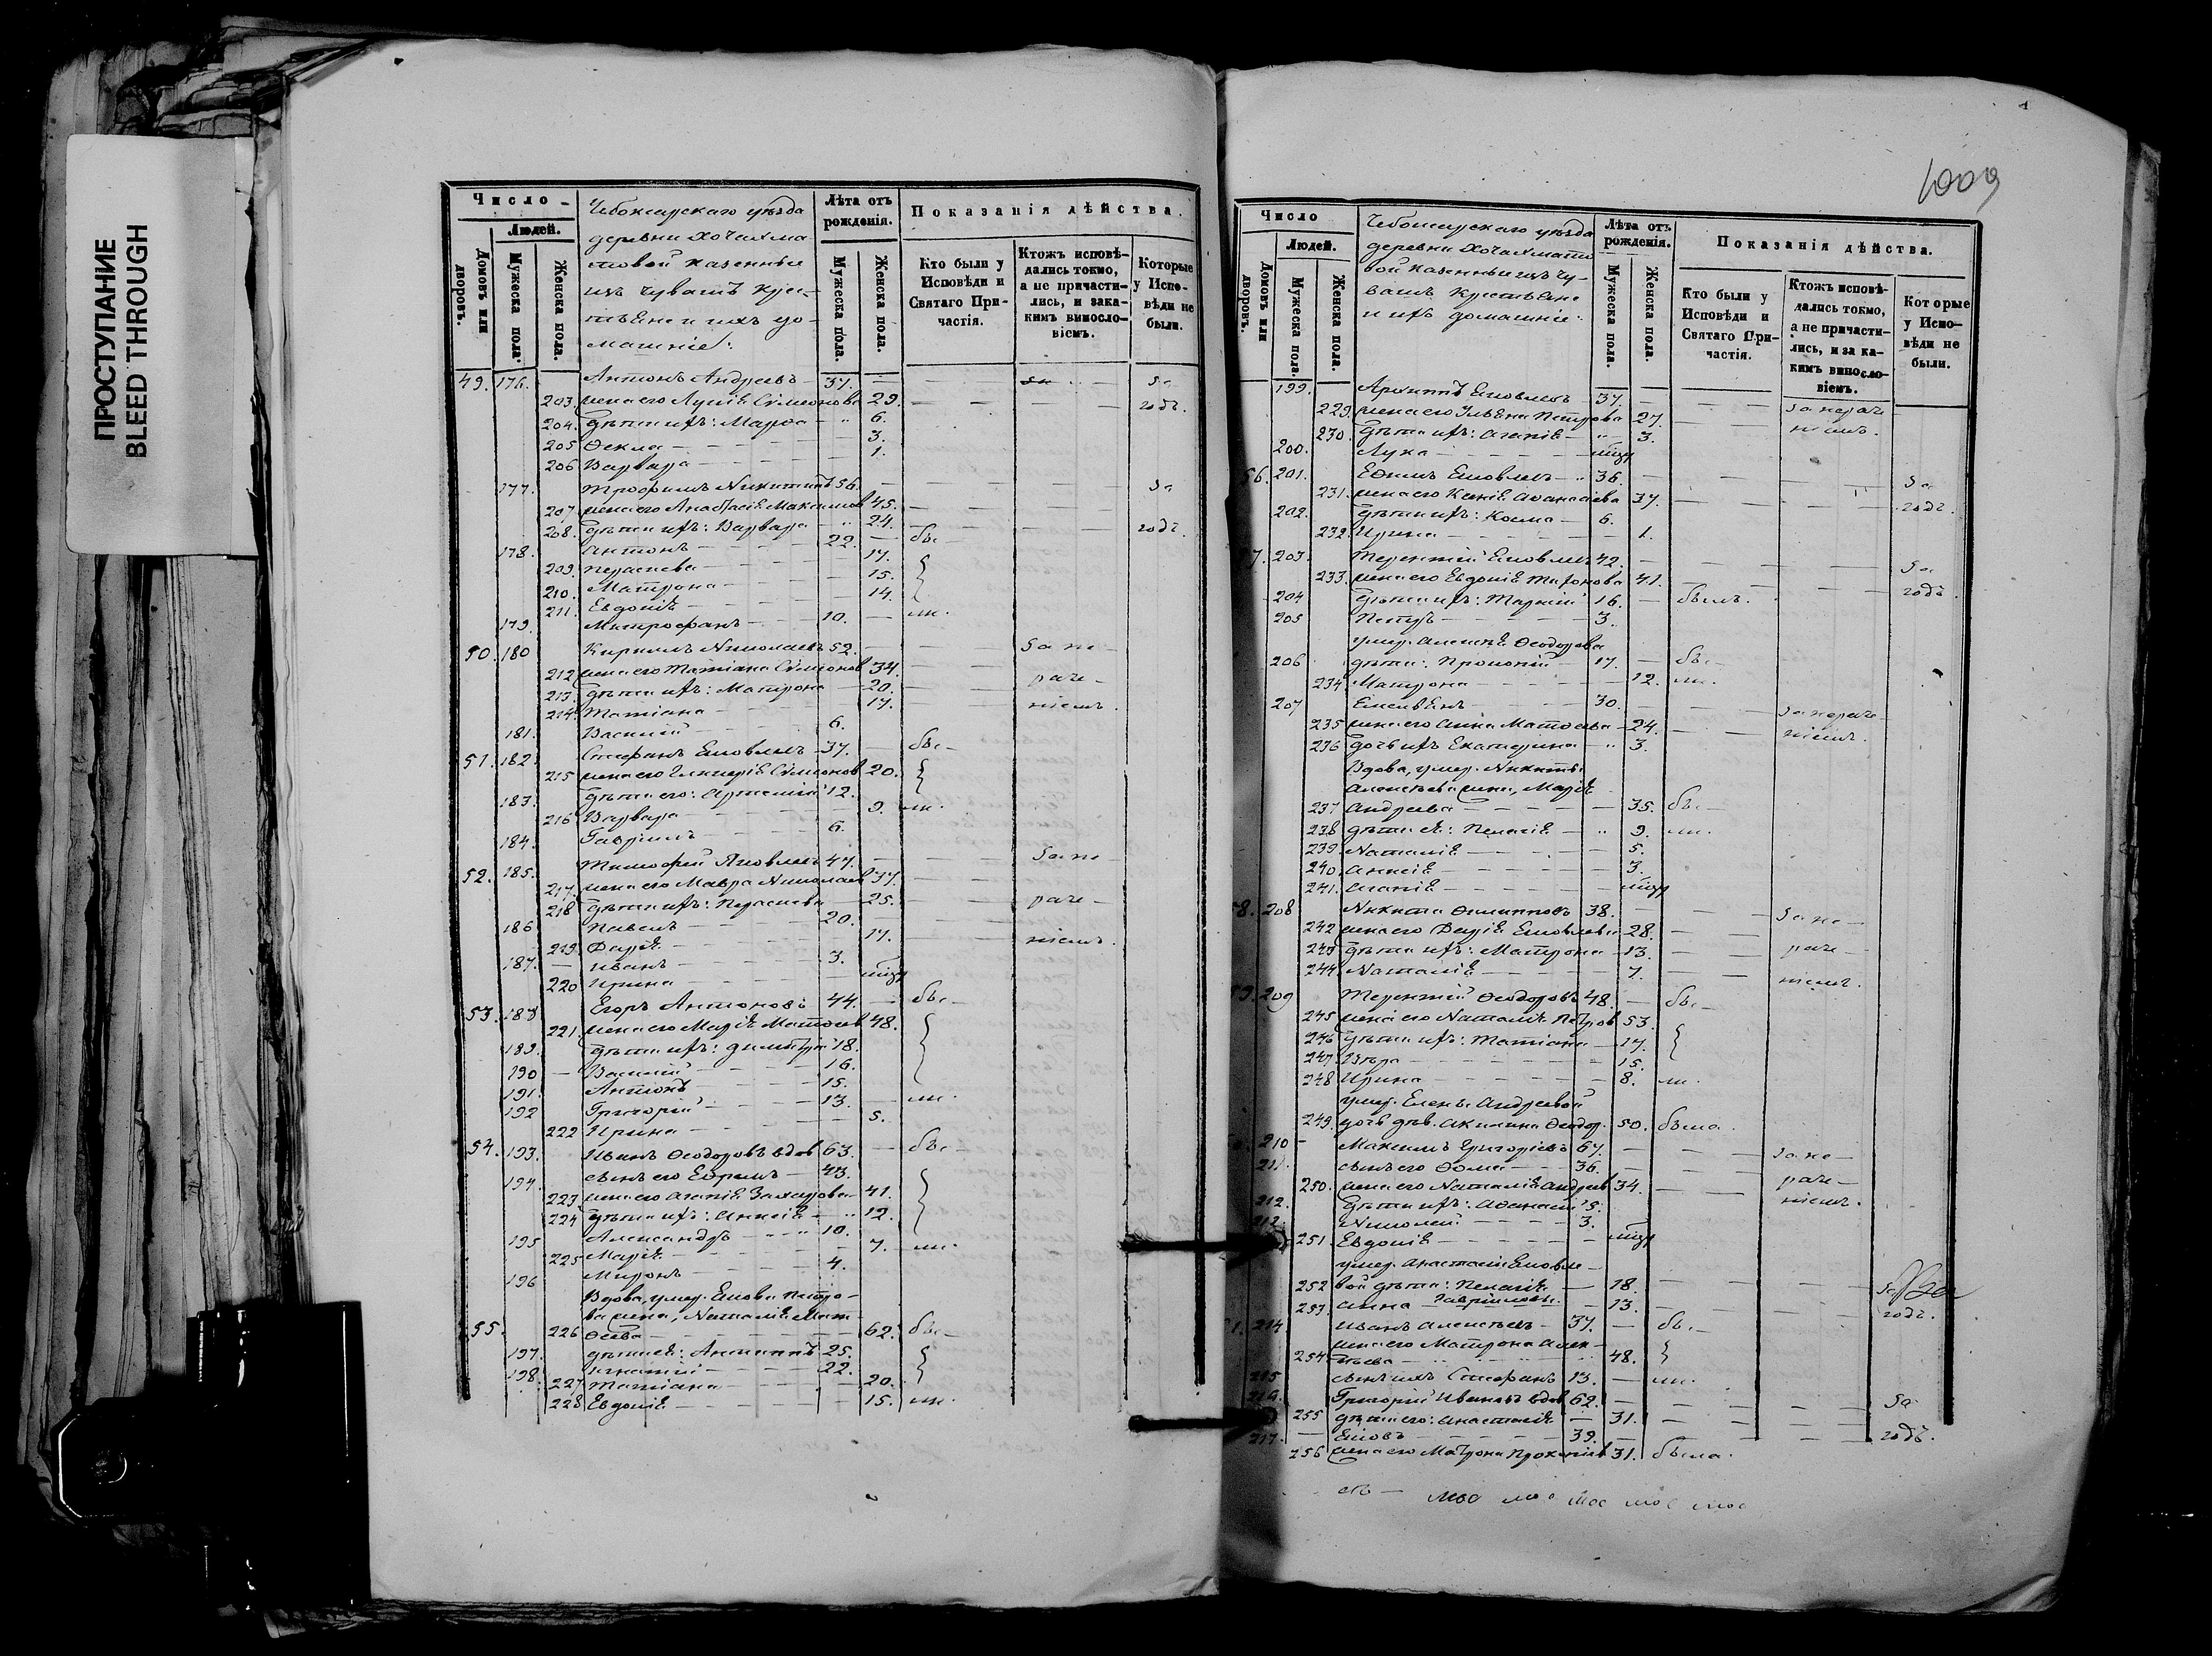 ПРОСТУПАНИЕ
BLEED THROUGH
Число
Людей.
Домовъ или дворовъ.
Мужеска пола.
Женска пола.
Чебоксарскаго уѣзда
деревни Хочахма
товой казенные
изъ чувашъ крес-
тьяне и ихъ до-
машніе:
Лѣта отъ рожденія.
Мужеска пола.
Женска пола.
Показанія дѣйства.
Кто были у Исповѣди и Святаго Причастія.
Ктожъ исповѣдались токмо, а не причастились, и за какимъ винословіемъ.
Которые у Исповѣди не были.
49. 176. Антонъ Андреевъ — 37. — за
203. жена его Лукія Сѵмеонова 29. — годъ.
204. дѣти ихъ: Марѳа — 6.
205 Ѳекла — 3.
206 Варвара — 1.
177. Трофимъ Никитинъ 56. — за
207. жена его Анастасія Максимов 45.
208. дѣти ихъ: Варвара — 24. — годъ.
178. Антонъ — 22. — бы-
209. Параскева — 17.
210. Матрона — 15.
211. Евдокія — 14.
179. Митрофанъ — 10. — ли.
50. 180 Кириллъ Николаевъ 52. — за не-
212 жена его Татіана Сѵмеонов 34.
213. дѣти ихъ: Матрона — 20. — раче-
214. Татіана — 17. — ніемъ.
181. Василій — 6.
51. 182. Стефанъ Яковлевъ — 37. — бы-
215 жена его Гликерія Сѵмеонов 20.
183. дѣти его: Артемій 12.
216 Варвара — 9. ли.
184. Гавріилъ — 6.
52. 185. Тимофей Яковлевъ 47. — за не-
217. жена его Мавра Николаев 37.
218 дѣти ихъ: Параскева — 25. — раче-
186 Павелъ — 20.
219. Дарія — 17. — ніемъ.
187. Иванъ — 3.
220 Ирина —
53. 188 Егоръ Антоновъ 44. — бы-
221. жена его Марія Матѳеев 48.
189. дѣти ихъ: Димитрій 18.
190 — Василій — 16.
191. Антонъ — 15.
192 Григорій — 13. — ли.
222 Ирина — 5.
54. 193. Иванъ Ѳеодоровъ вдов 63. — бы-
194. сынъ его Ефремъ — 43.
223 жена его Агапія Захарова — 41.
224 дѣти ихъ: Анисія — 12.
195 Александръ — 10.
225 Марія — 7. — ли.
196 Миронъ — 4.
Вдова, умер. Якова Петро-
ва жена, Наталія Мат-
55. 226 ѳеева — 62. бы-
197. дѣти ея: Антиппъ 25.
198. Игнатій — 22.
227 Татіана — 20.
228 Евдокія — 15. ли.
1009
Число
Людей.
Домовъ или дворовъ.
Мужеска пола.
Женска пола.
Чебоксарскаго уѣзда
деревни Хочахмато
вой казенные изъ чу-
вашъ крестьяне
и ихъ домашніе:
Лѣта отъ рожденія.
Мужеска пола.
Женска пола.
Показанія дѣйства.
Кто были у Исповѣди и Святаго Причастія.
Ктожъ исповѣдались токмо, а не причастились, и за какимъ винословіемъ.
Которые у Исповѣди не были.
199. Архиппъ Яковлевъ — 37. — за нераче
229. жена его Ульяна Петрова 27. — ніемъ.
230. дѣти ихъ: Агапія — 3.
200. Лука —
56. 201. Ефимъ Яковлевъ — 36. — за
231. жена его Ксенія Аѳанасіева 37. — годъ.
202. дѣти ихъ: Косма — 6.
232. Ирина — 1.
57. 203. Терентій Яковлевъ 42. — за
233. жена его Евдокія 41.
204 дѣти ихъ: 16. — былъ. — годъ.
205 Петръ — 3.
умер. Алексѣя Ѳеодорова
206 дѣти: Прокопій 17. — бы-
234 Матрона — 12. ли.
207 30. — за нераче
235 жена его Анна Матѳеева — 24. — ніемъ.
236 дочь ихъ Екатерина — 3.
Вдова, умер. Никиты
Алексѣева жена, Марія
237 Андреева — 35. бы-
238 дѣти ея: Пелагія — 9. ли.
239. Наталія — 5.
240. Анисія — 3.
241. Агапія —
58. 208 Никита Филипповъ 38. — за не-
242 жена его Дарія Яковлева 28.
243 дѣти ихъ: Матрона — 13. — раче-
244 Наталія — 7. — ніемъ.
59. 209 Терентій Ѳеодоровъ 48. — бы-
245 жена его Наталія Петров 53.
246 дѣти ихъ: Татіана — 17.
247 Вѣра — 15.
248 Ирина — 8. ли.
умер. Елены Андреевой
249. дочь дѣв. Акилина Ѳеодор. 50. была.
60. 210 Максимъ Григоріевъ 67. — за не-
211. сынъ его Ѳома — 36.
250. жена его Наталія Андреев 34. — раче-
212. дѣти ихъ: Аѳанасій 5. — ніемъ.
213. Николай — 3.
251 Евдокія —
умер. Анастасіи Яковле-
252 вой дѣти: Пелагія — 18. — за
253. Анна Гавріиловы — 13. — годъ.
61. 214 Иванъ Алексѣевъ — 37. — бы-
жена его Матрона Алек-
254 сѣева — 48.
215 сынъ ихъ Стефанъ 13. — ли.
216. Григорій Ивановъ вдов 62. — за
255 дѣти его: Анастасія — 31.
217. — Яковъ — 39. — годъ.
256 жена его Матрона Прокопіев 31. была.